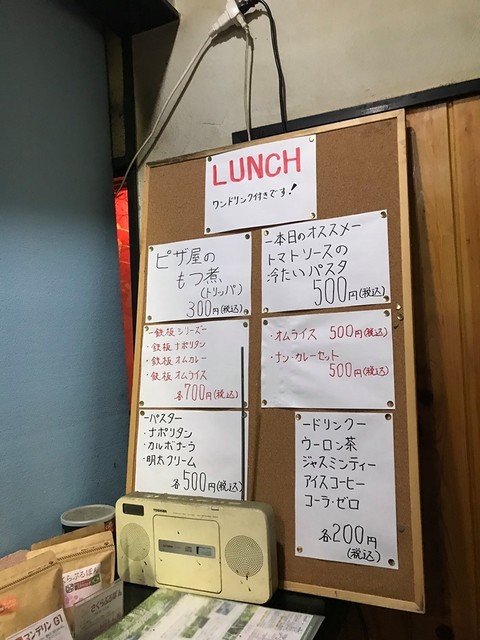 LUNCH
ワンドリンク付きです!
ピザ屋の
もつ煮
(トリッパ)
300円(税込)
ー本日のオススメー
トマトソースの
冷たいパスタ
500円(税込)
ー鉄板シリーズー
・鉄板ナポリタン
・鉄板オムカレー
・鉄板オムライス
各700円(税込)
・オムライス 500円(税込)
・ナン・カレーセット
500円(税込)
ーパスター
・ナポリタン
・カルボナーラ
・明太クリーム
各500円(税込)
ードリンクー
ウーロン茶
ジャスミンティー
アイスコーヒー
コーラ・ゼロ
各200円
(税込)
TOSHIBA
さくらぶるぼん
マンデリン G1